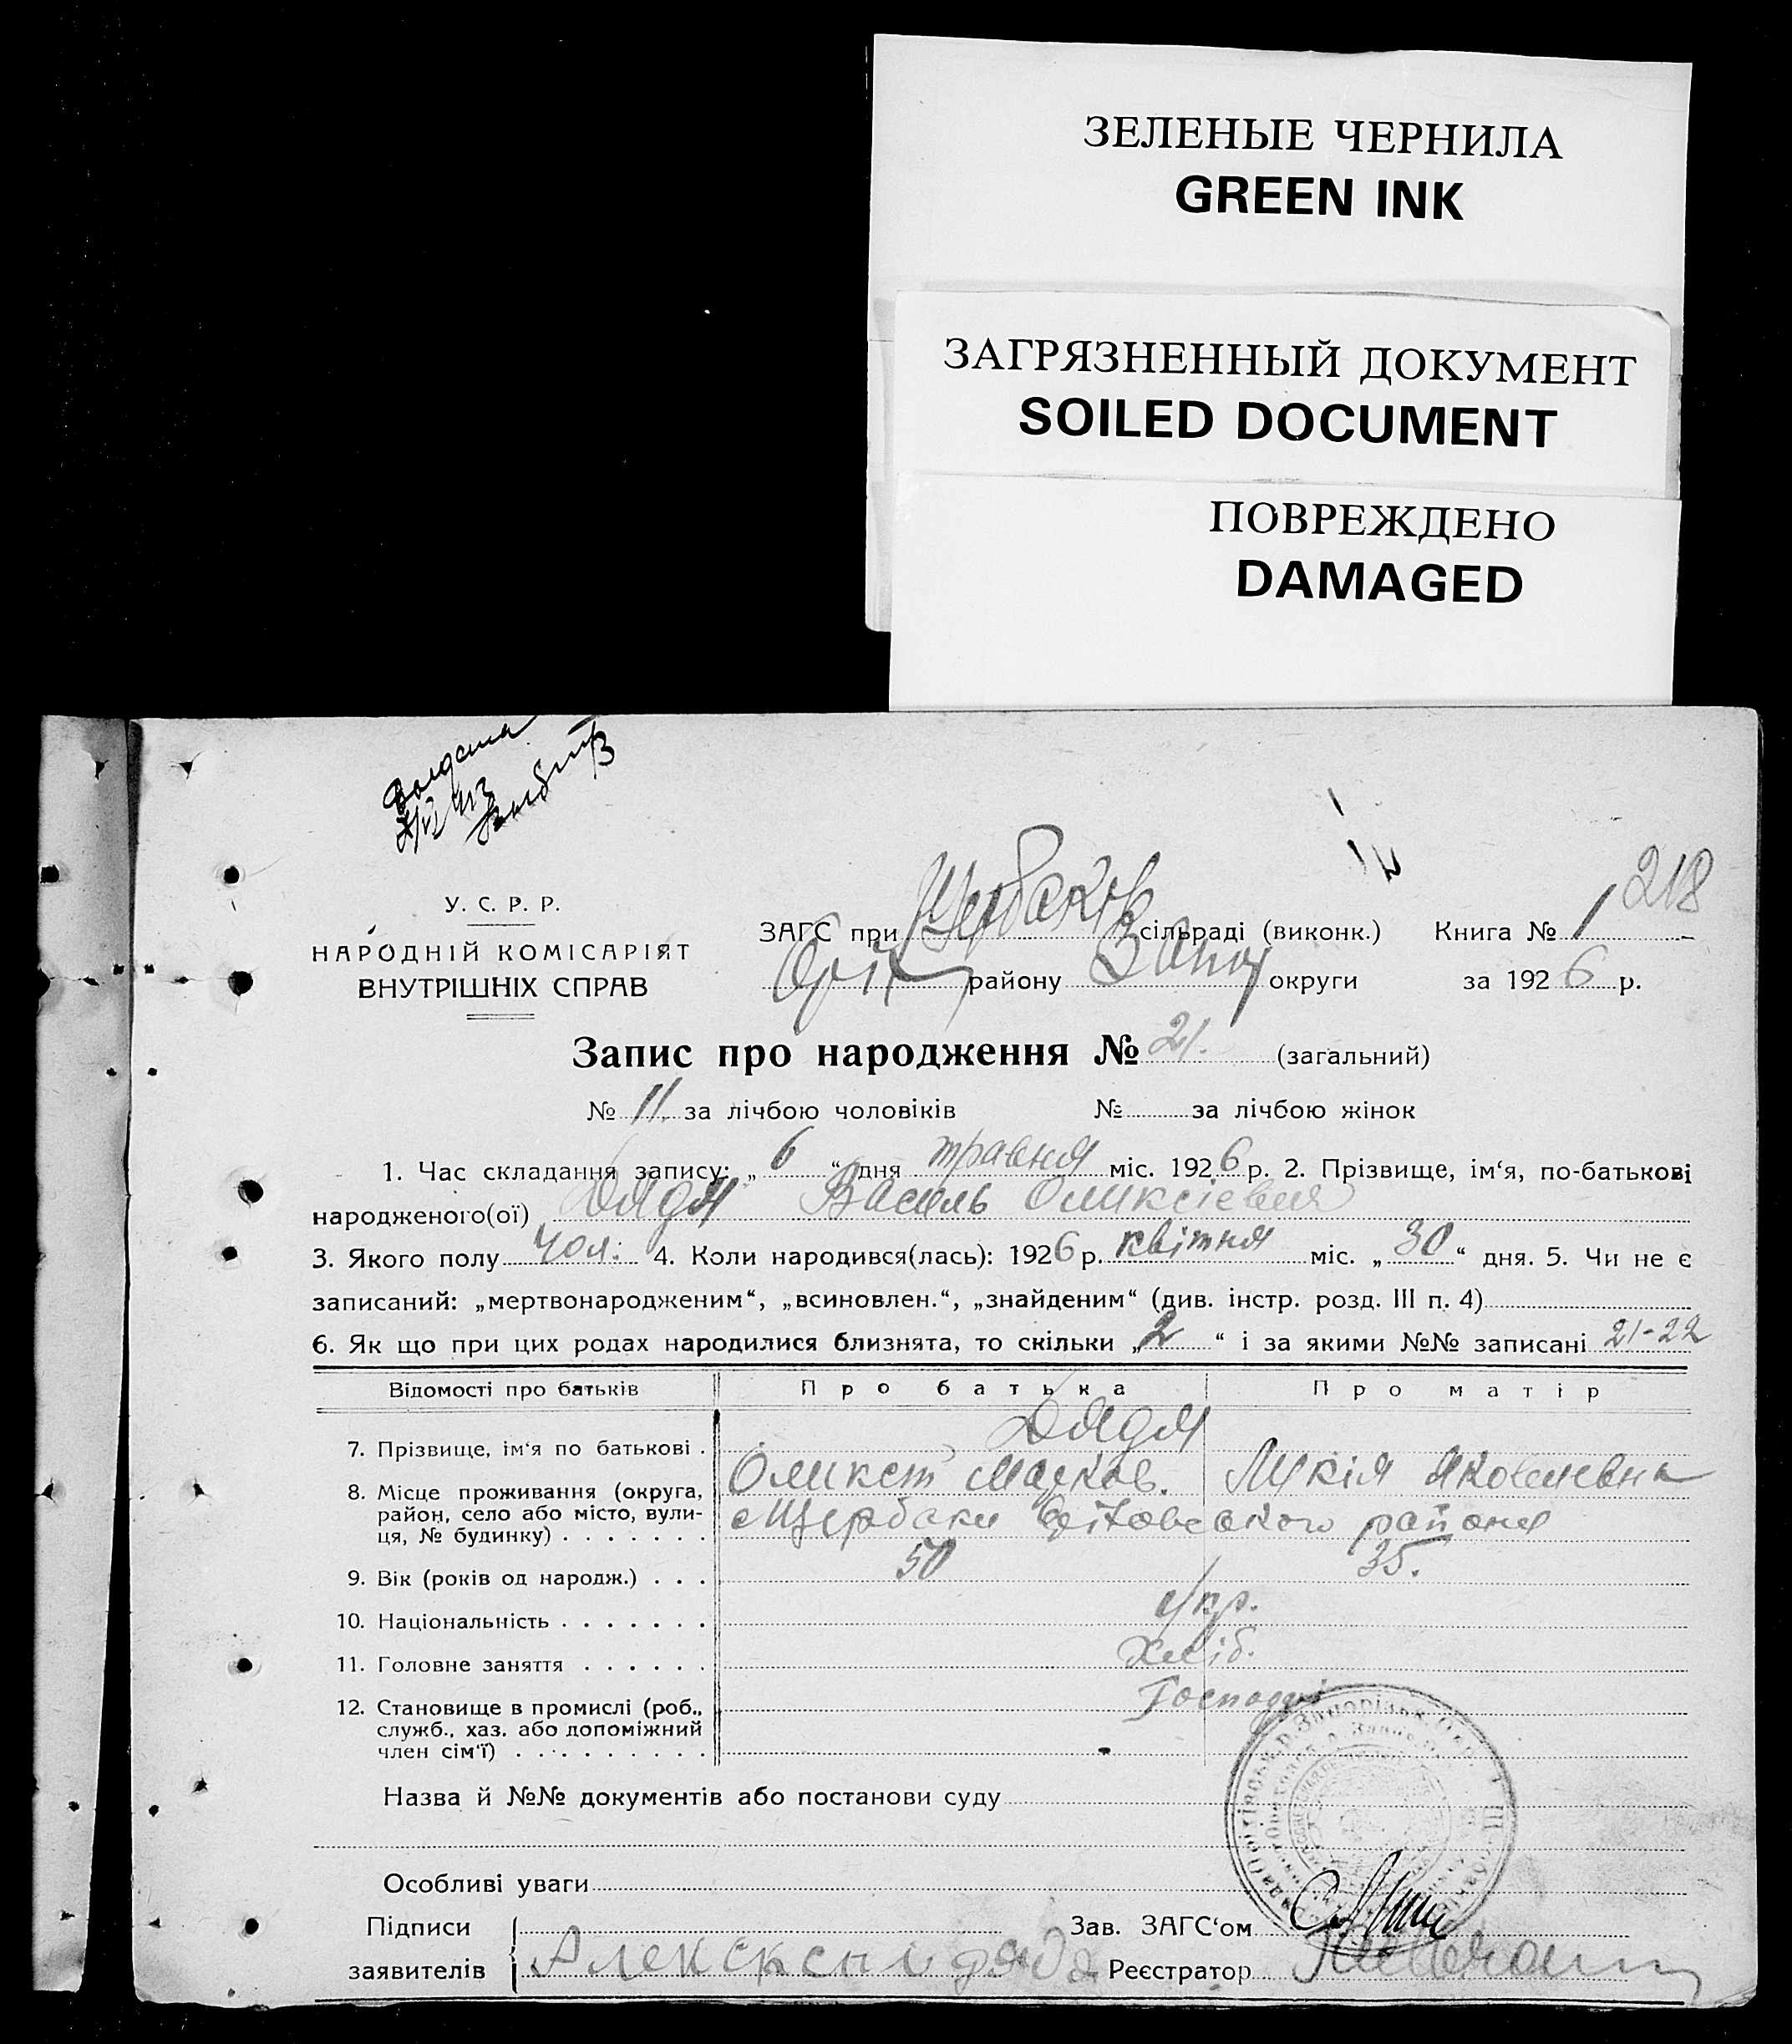 ЗЕЛЕНЫЕ ЧЕРНИЛА
GREEN INK
ЗАГРЯЗНЕННЫЙ ДОКУМЕНТ
SOILED DOCUMENT
ПОВРЕЖДЕНО
DAMAGED
218
У. С. Р. Р.
НАРОДНІЙ КОМІСАРІЯТ
ВНУТРІШНІХ СПРАВ
ЗАГС при Щербаків сільраді (виконк.) Книга № 1
Оріх району Запор округи за 1926 р.
Запис про народження № 21. (загальний)
№ 11 за лічбою чоловіків № за лічбою жінок
1. Час складання запису: „ 6 “ дня травня міс. 1926 р. 2. Прізвище, ім‘я, по-батькові
народженого(ої) Дядя Василь Оликсієвич
3. Якого полу чол. 4. Коли народився(лась): 1926 р. квітня міс. „ 30 “ дня. 5. Чи не є
записаний: „мертвонародженим“, „всиновлен.“, „знайденим“ (див. інстр. розд. III п. 4)
6. Як що при цих родах народилися близнята, то скільки „ 2 “ і за якими №№ записані 21-22
Відомості про батьків Про батька Про матір
Дядя
7. Прізвище, ім‘я по батькові .
Марков. Лукія Яковлевна
8. Місце проживання (округа,
район, село або місто, вули-
ця, № будинку) . . . . . . .
с Щербаки Оріховського района
9. Вік (років од народж.) . . . 50 35.
10. Національність . . . . . . . Укр.
11. Головне заняття . . . . . . Хліб.
12. Становище в промислі (роб.,
служб., хаз. або допоміжний
член сім‘ї) . . . . . . . . .
Господарі
Назва й №№ документів або постанови суду
Особливі уваги
Підписи
заявителів
дядя
Зав. ЗАГС‘ом
Реєстратор